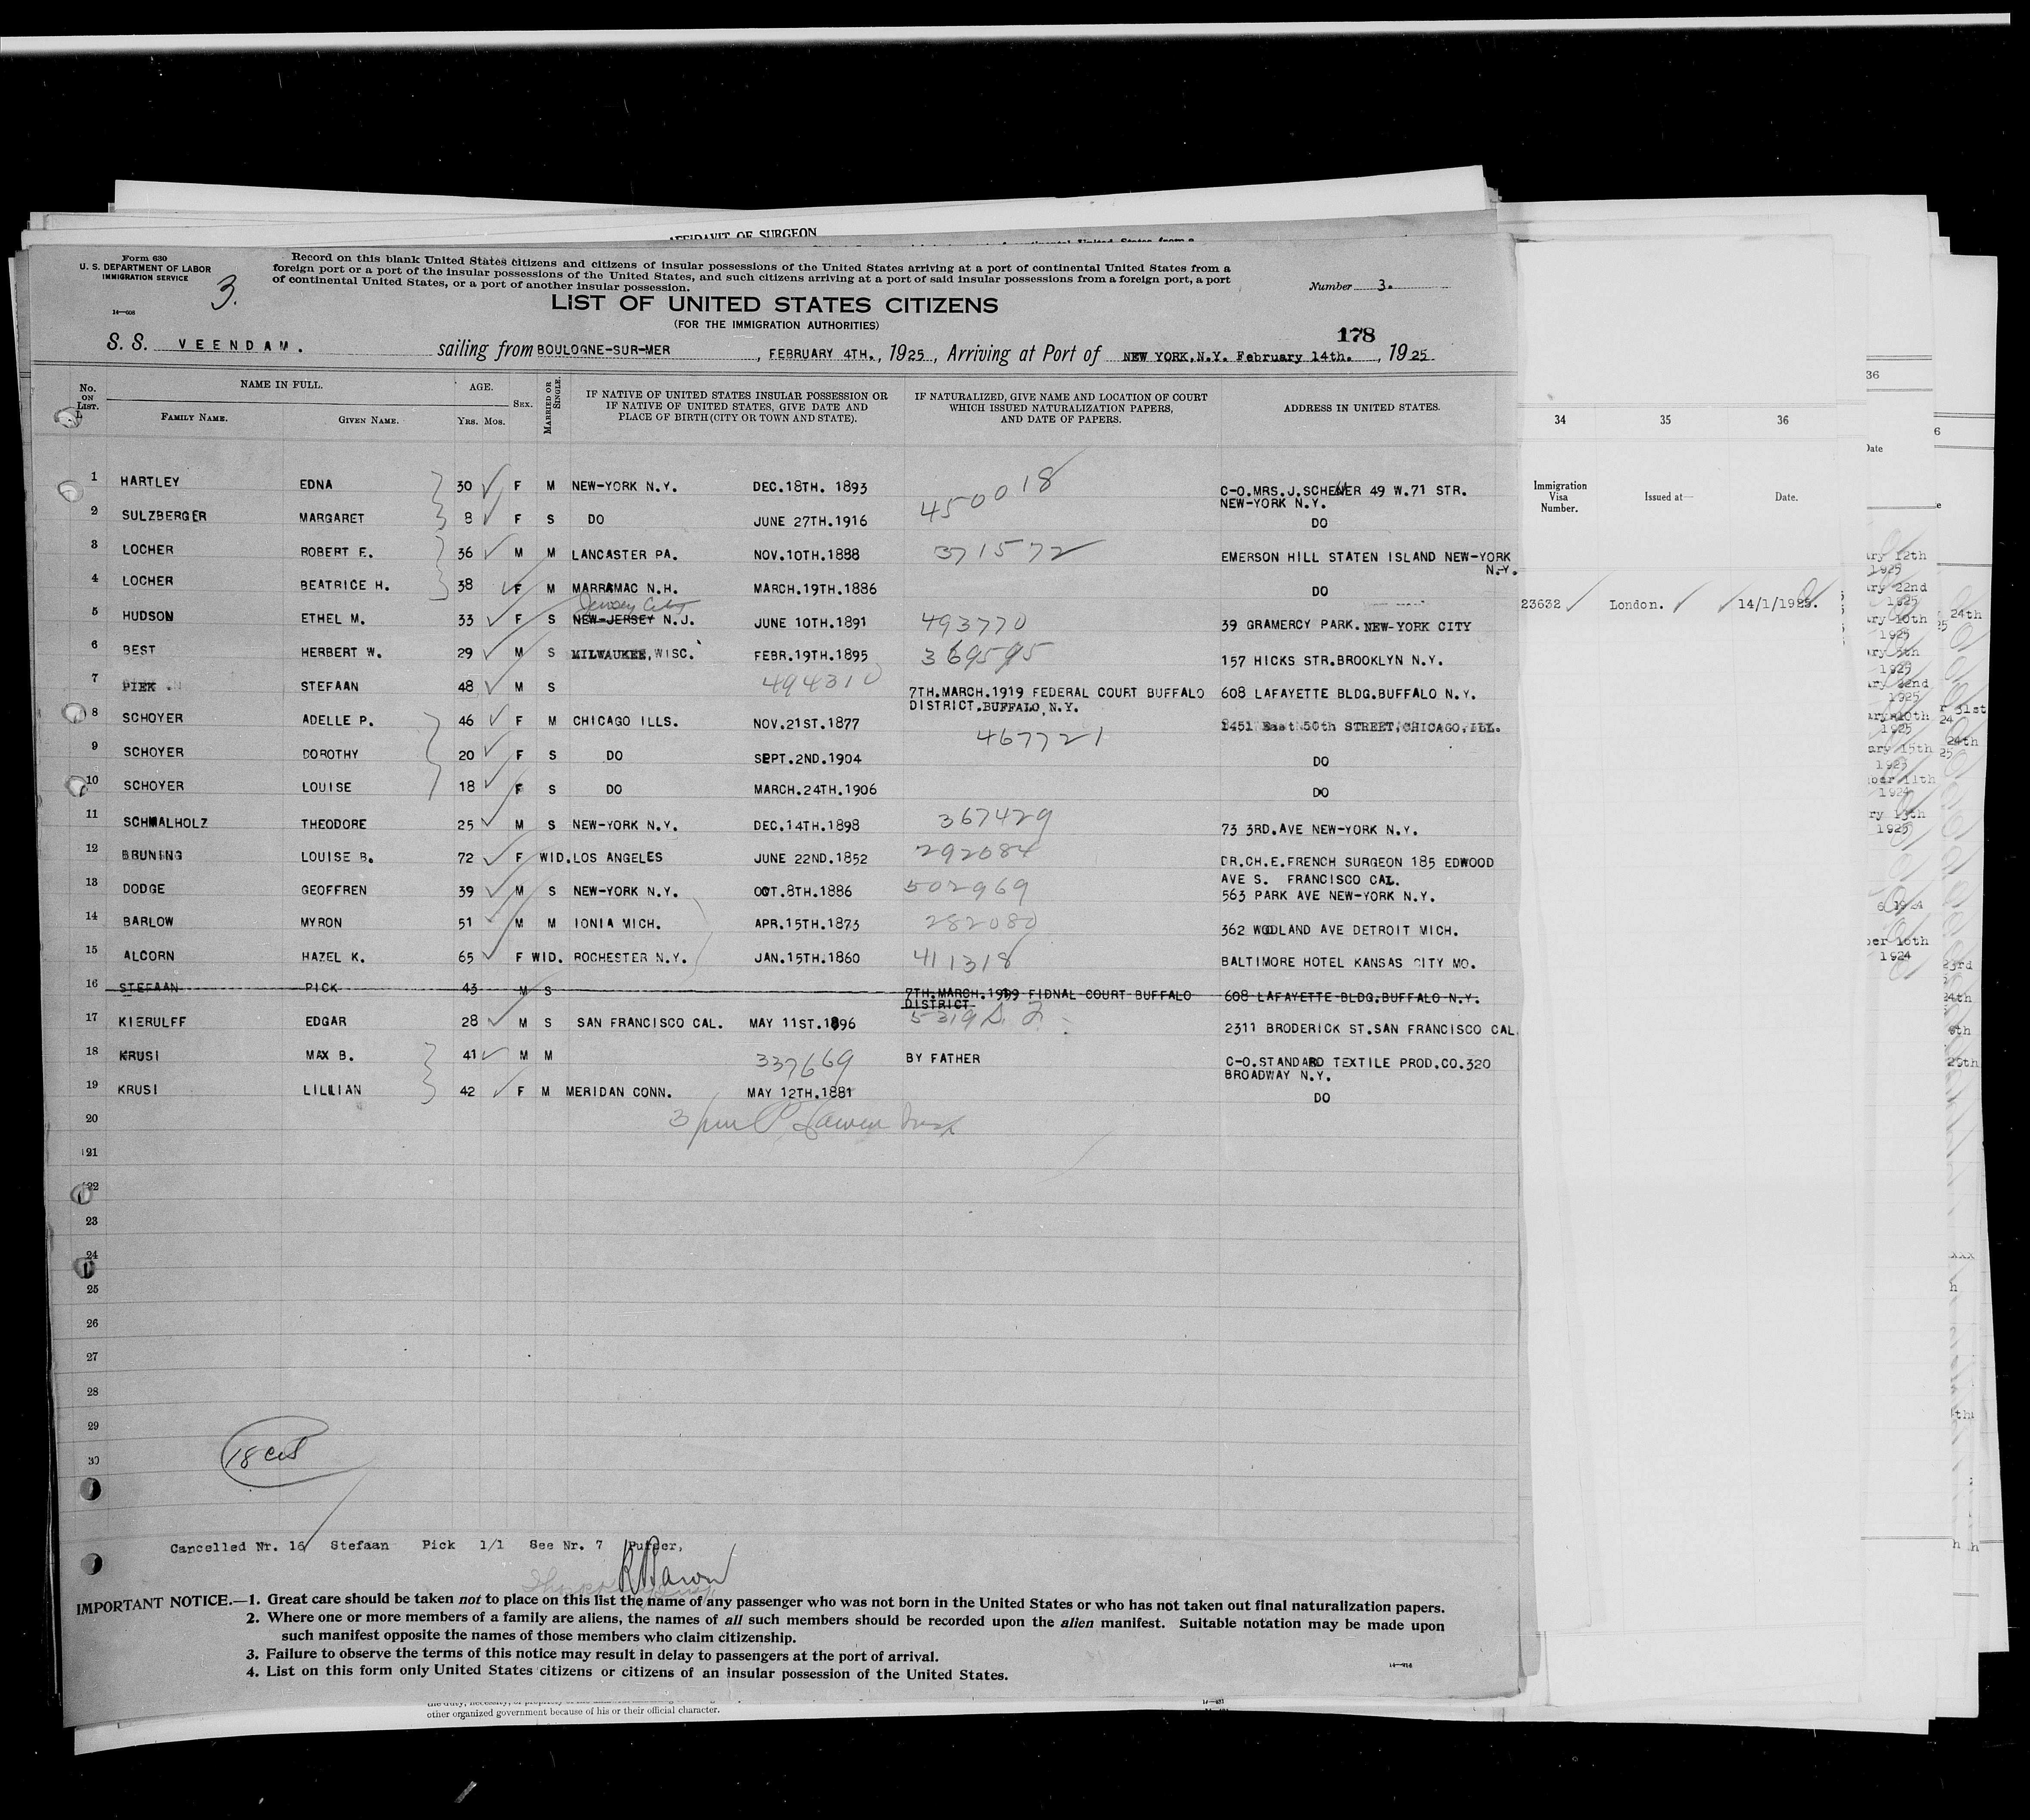 AFFIDAVIT OF SURGEON
Form 630
U. S. DEPARTMENT OF LABOR
IMMIGRATION SERVICE
3.
14—608
Record on this blank United States citizens and citizens of insular possessions of the United States arriving at a port of continental United States from a
foreign port or a port of the insular possessions of the United States, and such citizens arriving at a port of said insular possessions from a foreign port, a port
of continental United States, or a port of another insular possession.
Number 3.
LIST OF UNITED STATES CITIZENS
(FOR THE IMMIGRATION AUTHORITIES)
178
S. S. VEENDAM. sailing from BOULOGNE-SUR-MER, FEBRUARY 4TH., 1925, Arriving at Port of NEW YORK, N.Y. February 14th., 1925
No. ON LIST. NAME IN FULL. AGE. SEX. MARRIED OR SINGLE. IF NATIVE OF UNITED STATES INSULAR POSSESSION OR IF NATIVE OF UNITED STATES, GIVE DATE AND PLACE OF BIRTH (CITY OR TOWN AND STATE). IF NATURALIZED, GIVE NAME AND LOCATION OF COURT WHICH ISSUED NATURALIZATION PAPERS, AND DATE OF PAPERS. ADDRESS IN UNITED STATES.
FAMILY NAME. GIVEN NAME. YRS. MOS.
1 HARTLEY EDNA 30 F M NEW-YORK N.Y. DEC.18TH. 1893 450018 C-O.MRS.J.SCHEUER 49 W.71 STR.
NEW-YORK N.Y.
2 SULZBERGER MARGARET 8 F S DO JUNE 27TH.1916 DO
3 LOCHER ROBERT E. 36 M M LANCASTER PA. NOV.10TH.1888 371572 EMERSON HILL STATEN ISLAND NEW-YORK
N.Y.
4 LOCHER BEATRICE H. 38 F M MARRAMAC N.H. MARCH.19TH.1886 DO
Jersey City
5 HUDSON ETHEL M. 33 F S NEW-JERSEY N.J. JUNE 10TH.1891 493770 39 GRAMERCY PARK. NEW-YORK CITY
6 BEST HERBERT W. 29 M S MILWAUKEE, WISC. FEBR.19TH.1895 369595 157 HICKS STR.BROOKLYN N.Y.
7 PIEK STEFAAN 48 M S 494310 7TH.MARCH.1919 FEDERAL COURT BUFFALO 608 LAFAYETTE BLDG.BUFFALO N.Y.
DISTRICT.BUFFALO, N.Y.
8 SCHOYER ADELLE P. 46 F M CHICAGO ILLS. NOV.21ST.1877 1451 East 50th STREET, CHICAGO, ILL.
467721
9 SCHOYER DOROTHY 20 F S DO SEPT.2ND.1904 DO
10 SCHOYER LOUISE 18 F S DO MARCH.24TH.1906 DO
11 SCHMALHOLZ THEODORE 25 M S NEW-YORK N.Y. DEC.14TH.1898 367429 73 3RD.AVE NEW-YORK N.Y.
12 BRUNING LOUISE B. 72 F WID. LOS ANGELES JUNE 22ND.1852 292084 DR.CH.E.FRENCH SURGEON 185 EDWOOD
AVE S. FRANCISCO CAL.
13 DODGE GEOFFREN 39 M S NEW-YORK N.Y. OCT.8TH.1886 502969 563 PARK AVE NEW-YORK N.Y.
14 BARLOW MYRON 51 M M IONIA MICH. APR.15TH.1873 282080 362 WOODLAND AVE DETROIT MICH.
15 ALCORN HAZEL K. 65 F WID. ROCHESTER N.Y. JAN.15TH.1860 411318 BALTIMORE HOTEL KANSAS CITY MO.
16 STEFAAN PICK 43 M S 7TH.MARCH.1919 FIDNAL COURT BUFFALO 608 LAFAYETTE BLDG.BUFFALO N.Y.
DISTRICT
17 KIERULFF EDGAR 28 M S SAN FRANCISCO CAL. MAY 11ST.1896 5319 2311 BRODERICK ST.SAN FRANCISCO CAL.
18 KRUSI MAX B. 41 M M 337669 BY FATHER C-O.STANDARD TEXTILE PROD.CO.320
BROADWAY N.Y.
19 KRUSI LILLIAN 42 F M MERIDAN CONN. MAY 12TH.1881 DO
20
21
22
23
24
25
26
27
28
29
30
18 cit
Cancelled Nr. 16 Stefaan Pick 1/1 See Nr. 7 Purser,
IMPORTANT NOTICE.—1. Great care should be taken not to place on this list the name of any passenger who was not born in the United States or who has not taken out final naturalization papers.
2. Where one or more members of a family are aliens, the names of all such members should be recorded upon the alien manifest. Suitable notation may be made upon
such manifest opposite the names of those members who claim citizenship.
3. Failure to observe the terms of this notice may result in delay to passengers at the port of arrival.
4. List on this form only United States citizens or citizens of an insular possession of the United States.
other organized government because of his or their official character.
34 35 36
Immigration Visa Number. Issued at— Date.
23632 London. 14/1/1925.